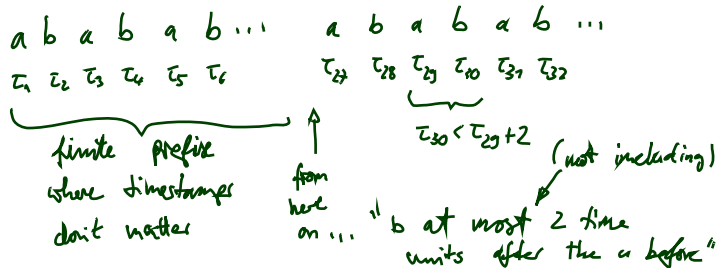 a b a b a b ... a b a b a b ...
τ₁ τ₂ τ₃ τ₄ τ₅ τ₆ τ₂₇ τ₂₈ τ₂₉ τ₃₀ τ₃₁ τ₃₂
τ₃₀ < τ₂₉ + 2
finite prefix
where timestamps
don't matter
from
here
on ...
(not including)
"b at most 2 time
units after the a before"